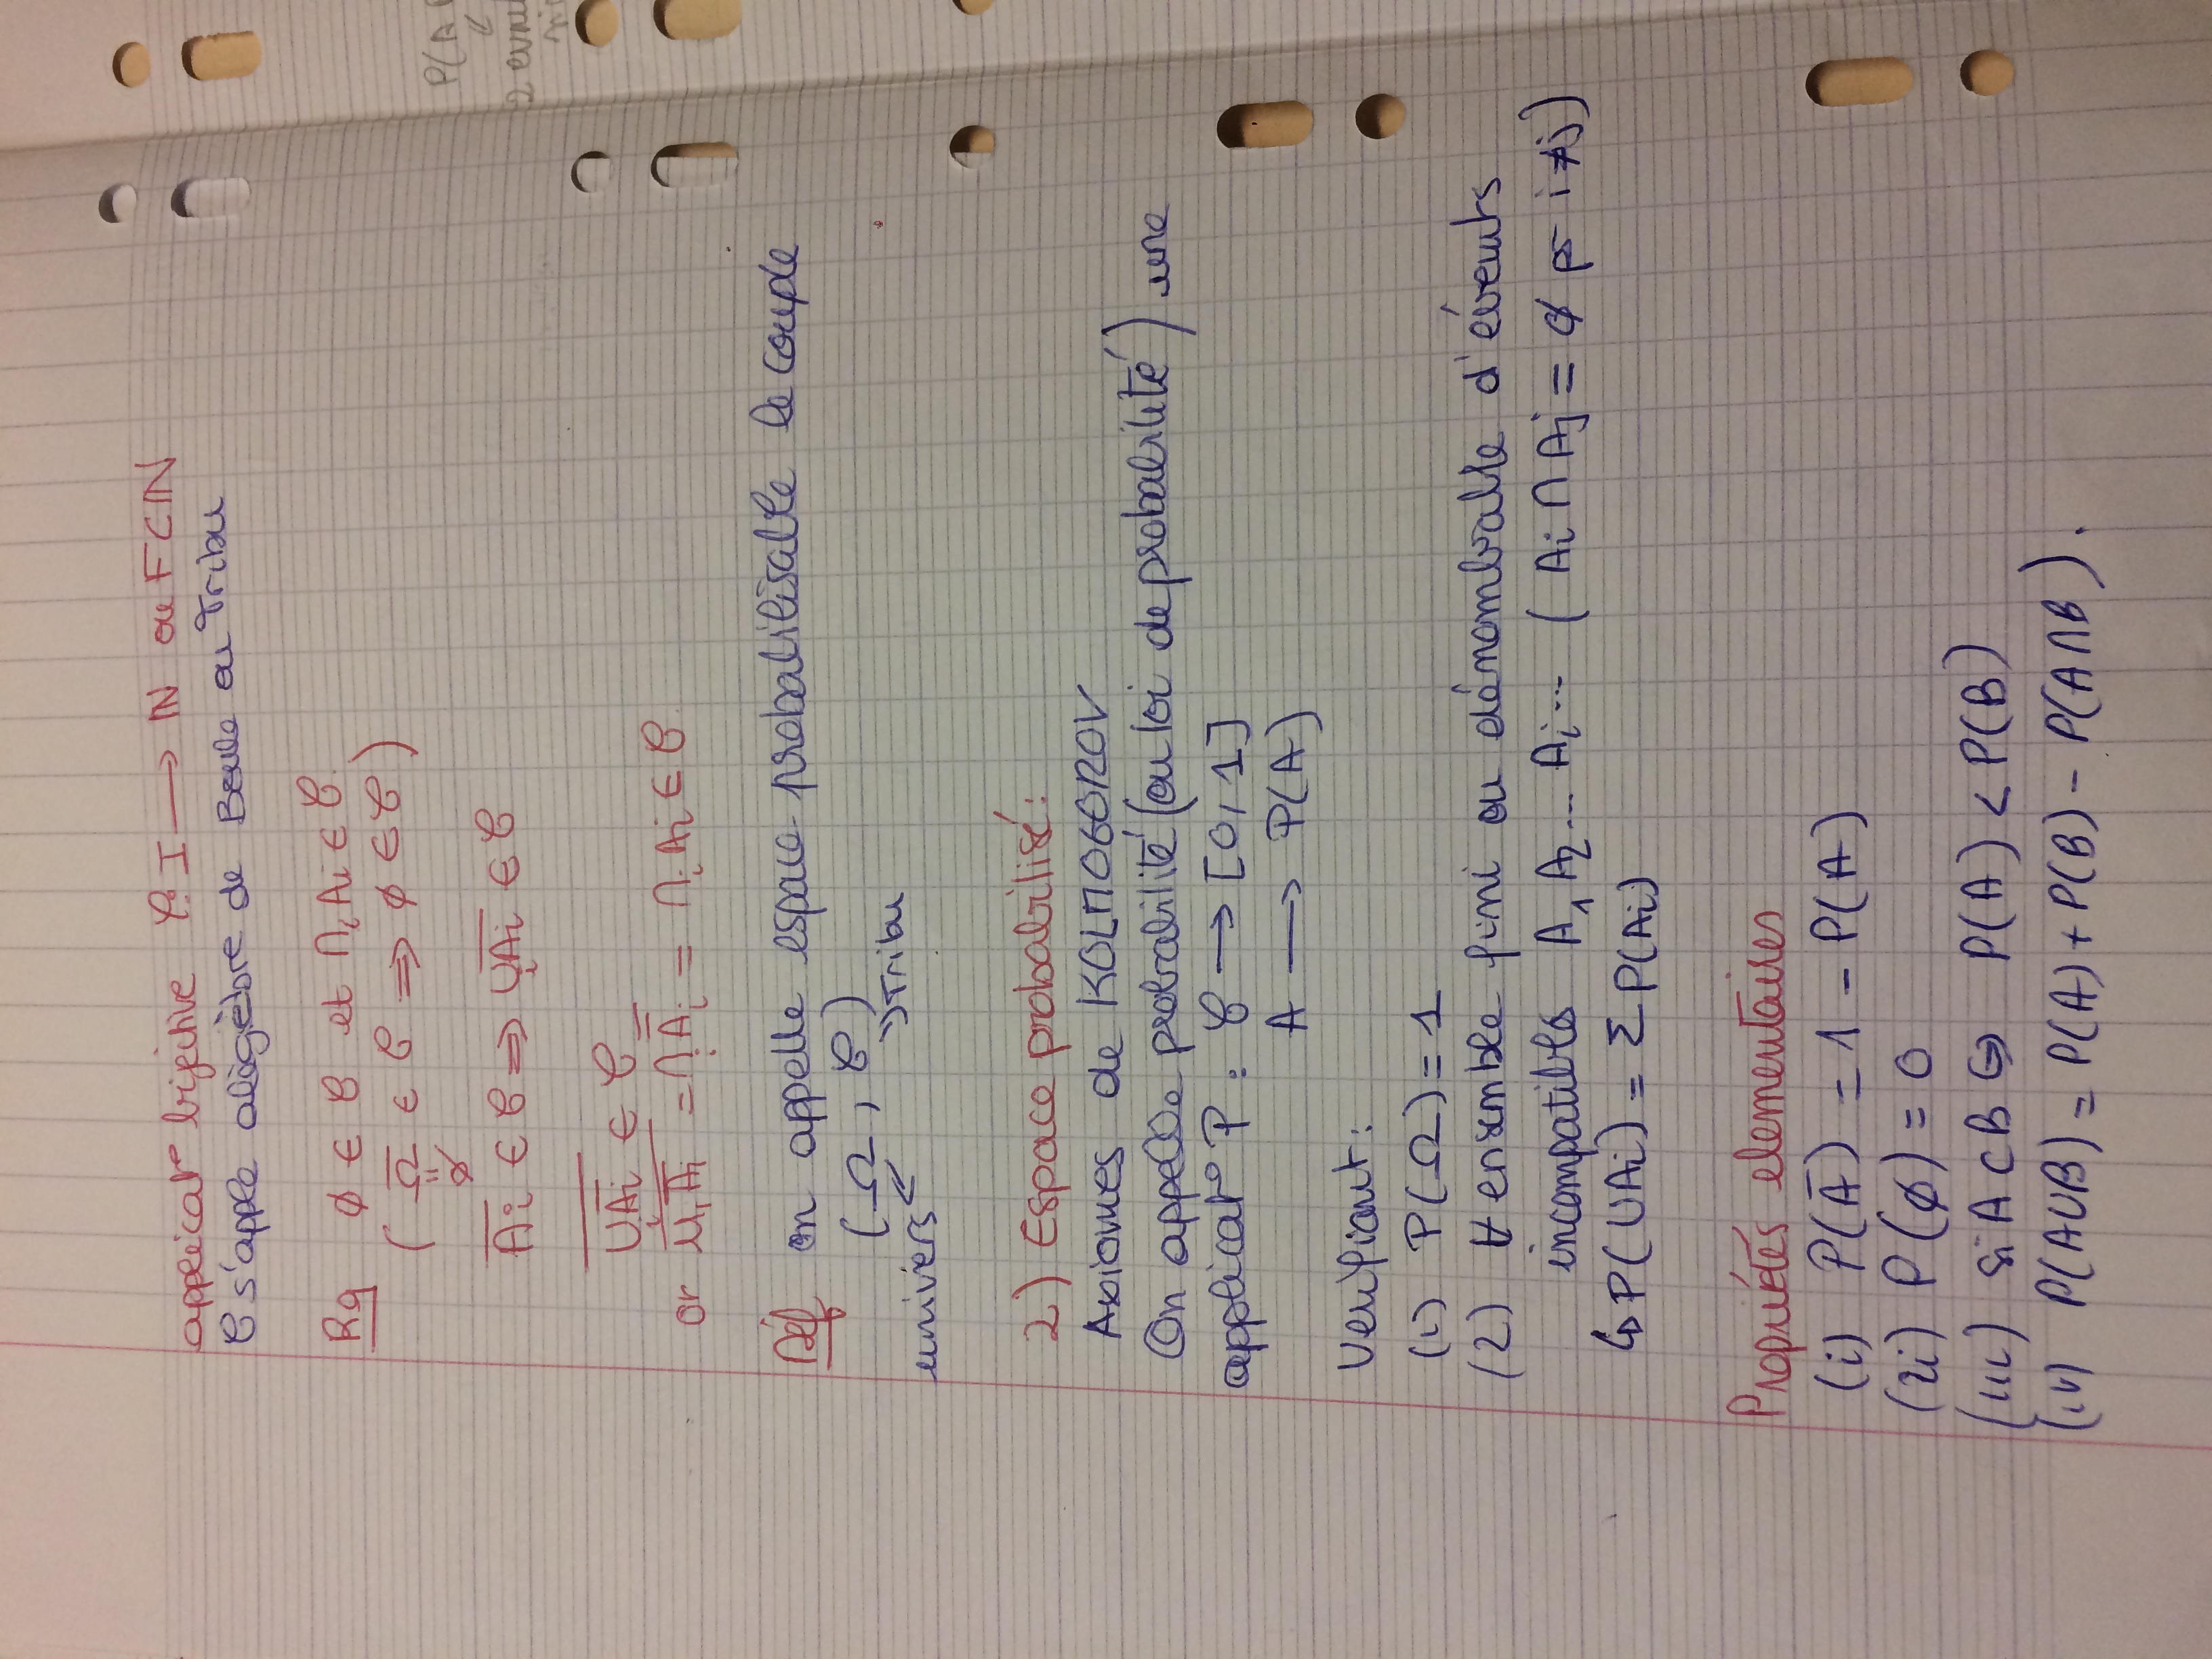 applicat° bijective φ: I → IN ou F⊂IN
𝒞 s'apple alègèbre de Boule ou Tribu
Rq ∅ ∈ 𝒞 et ∩ᵢ Ai ∈ 𝒞.
( Ω̅ ∈ 𝒞 ⇒ ∅ ∈ 𝒞 )
=
∅
A̅i̅ ∈ 𝒞 ⇒ ∪ᵢ A̅i̅ ∈ 𝒞
\overline{∪ᵢ \overline{Ai}} ∈ 𝒞
or \overline{∪ᵢ \overline{Ai}} = ∩ᵢ \overline{\overline{A}}ᵢ = ∩ᵢ Ai ∈ 𝒞.
Déf on appelle espace probabilisable le couple
(Ω, 𝒞)
univers ↙ ↘ Tribu
2) Espace probabilisé:
Axiomes de KOLMOGOROV
On appelle probabilité (ou loi de probabilité) une
applicat° P : 𝒞 → [0, 1]
A → P(A)
Verifiant:
(1) P(Ω) = 1
(2) ∀ ensemble fini ou dénombrable d'évents
incompatibles A₁ A₂ ... Aᵢ ... ( Ai ∩ Aj = ∅ pr i ≠ j )
↳ P(∪Ai) = Σ P(Ai)
Propriétés elementaires
(i) P(A̅) = 1 - P(A)
(2i) P(∅) = 0
(iii) si A ⊂ B ⇔ P(A) < P(B)
(iv) P(A∪B) = P(A) + P(B) - P(A∩B).
P(A
↙
2